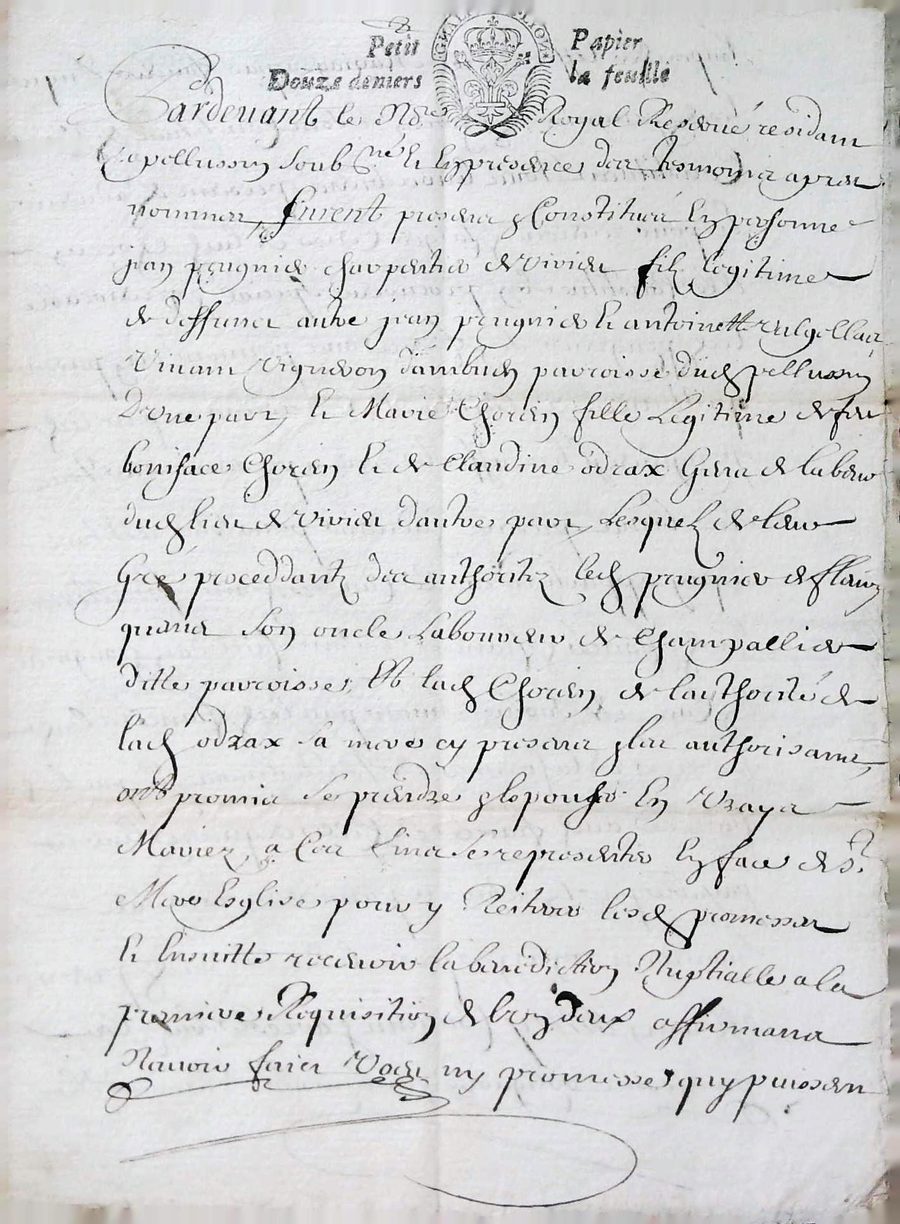 Petit Papier
Douze deniers la feuille
Pardevant le No.re Royal Reservé residam
a pellussin soub.né et En presence des tesmoins apres
nommes furent presens & Constitués En personne
jean prugnier charpentier de vivier filz Legitime
de deffunct autre jean prugnier et antoinette
vivam vigneron dambuen parroisse dud pellussin
Dune part et Marie Chorein fille Legitime de feu
boniface Chorein et de Claudine odrax Gens de labeur
dud lieu de vivier dautre part Lesquelz de leur
Gré proceddantz des authoritez led prugnier de fleury
son oncle Laboureur de Champallier
ditte parroisse, Et lad Chorein de lauthorité de
lad odrax sa mere cy presens & les authorisans
ont promis se prendre & Espouser En vrays
Mariez, a Ces fins se representer En face de s.te
Mere Esglise pour y Reiterer lesd promesses
Et Ensuitte recevoir la benediction Nuptialle a la
premiere Requisition de lun deux affirmans
Navoir faict voeu ny promesse quy puissent